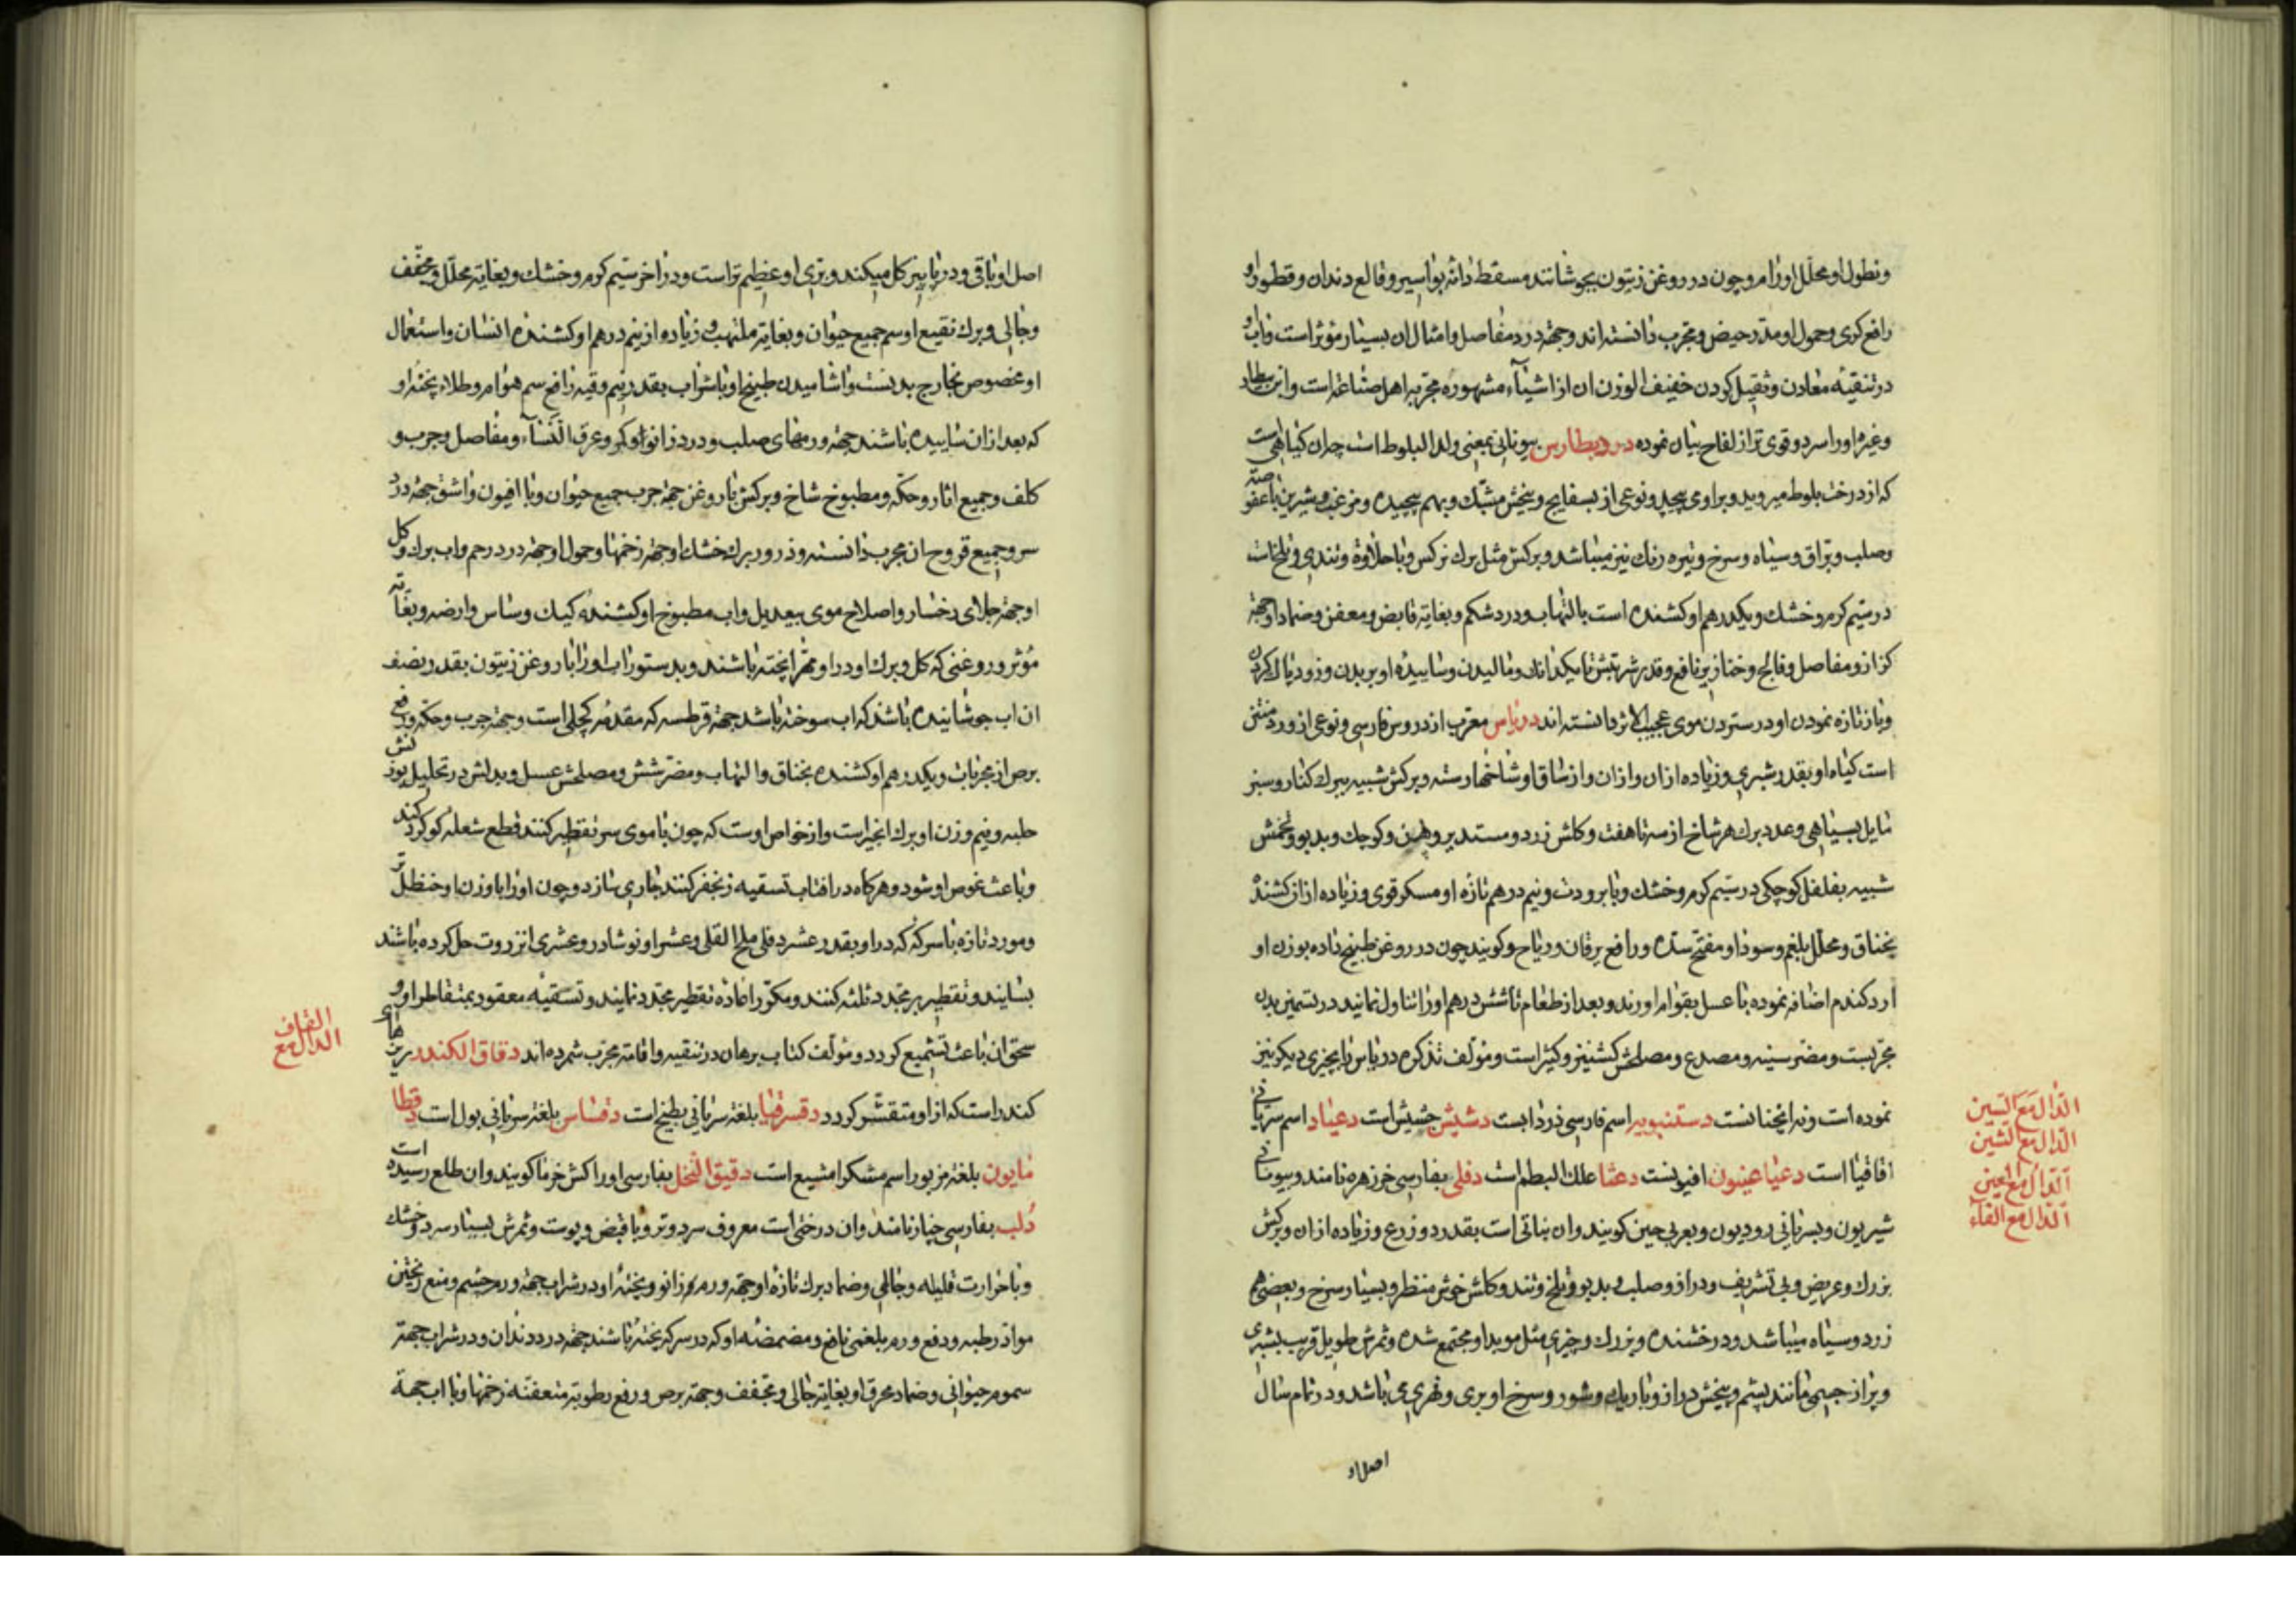 ونطول او محلل اورام و چون در روغن زیتون بجوشانند مسقط دانه بواسیر و قالع دندان و قطور او
رافع کری و حمول او مدر حیض و مجرب دانسته اند و جهة درد مفاصل و امثال ان بسیار مؤثر است و اب او
در تنقیه معادن و ثقیل کردن خفیف الوزن ان از اشیآء مشهوره مجربه اهل صناعة است و ابن بیطار
و غیره او را سرد و قوی تر از لفاح بیان نموده دروبطارس بیونانی بمعنی ولد البلوط است چه ان کیاهی است
که از درخت بلوط میروید و بر او می پیچد و نوعی از بسفایج و بیخش مشبک و بهم پیچیده و مزغب و شیرین با عفوصة
وصلب و براق و سیاه و سرخ و تیره رنك نیز میباشد و برکش مثل برك نرکس و با حلاوة و تندی و تلخی است
در سیم کرم و خشك و یکدرهم او کشنده است بالتهاب و درد شکم و بغایة قابض و معفن و ضماد او جهة
کزاز و مفاصل و فالج و خنازیر نافع و قدر شربتش تا یکدانك و مالیدن و ساییده او بر بدن و زود پاك کردن
و باز تازه نمودن او در ستردن موی عجیب الاثر دانسته اند درباس معرب از دروس فارسی و نوعی از ورد منتن
است کیاه او بقدر شبری و زیاده از ان و از ساق او شاخها رسته و برکش شبیه ببرك کنار و سبز
مایل بسیاهی و عدد برك هر شاخ از سه تا هفت و کلش زرد و مستدیر و پهن و کوچك و بدبو و تخمش
شبیه بفلفل کوچکی در سیم کرم و خشك و با برودت و نیم درهم تازه او مسکر قوی و زیاده از ان کشنده
بخناق و محلل بلغم و سودا و مفتح سده و رافع یرقان و ریاح و کویند چون در روغن طبیخ داده بوزن او
ارد کندم اضافه نموده با عسل بقوام اورند و بعد از طعام تا شش درهم او را تناول نمایند در تسمین بدن
مجربست و مضر سینه و مصدع و مصلحش کشنیز و کثیرا است و مؤلف تذکره درباس را بچیزی دیکر نیز
نموده است و نه انچنانست دستنبویه اسم فارسی ذردابست دشیش جشیش است دعیاد اسم سریانی
اقاقیا است دعیا عینون افیونست دعثا علك البطم است دفلی بفارسی خرزهره نامند و بیونانی
شیریون و بسریانی رودیون و بعربی حبن کویند و ان نباتی است بقدر دو زرع و زیاده از ان و برکش
بزرك و عریض و بی تشریف و دراز و صلب و بدبو و تلخ و تند و کلش خوش منظر و بسیار سرخ و بعضی هم
زرد و سیاه میباشد و درخشنده و بزرك و چیزی مثل مو بر او مجتمع شده و ثمرش طویل قریب بشبری
و پر از جسمی مانند پشم و بیخش دراز و باریك و شور و سرخ او بری و نهری می باشد و در تمام سال
اصل او
الدال مع السین
الدال مع الشین
الدال مع العین
الدال مع الفآء
اصل او باقی و در پاییز کل میکند و بری او عظیم تر است و در اخر سیم کرم و خشك و بغایة محلل و مجفف
و جالی و برك نقیع او سم جمیع حیوان و بغایة ملتهب و زیاده از نیم درهم او کشنده انسان و استعمال
او مخصوص بخارج بدنست و اشامیدن طبیخ او با شراب بقدر نیم وقیه رافع سم هوام و طلاء پخته او
که بعد از ان ساییده باشند جهة ورمهای صلب و درد زانو و کمر و عرق النسآء و مفاصل و جرب و
کلف و جمیع اثار و حکه و مطبوخ شاخ و برکش با روغن جهة جرب جمیع حیوان و با افیون و اشق جهة درد
سر و جمیع قروح ان مجرب دانسته و ذرور برك خشك او جهة زخمها و حمول او جهة درد رحم و اب برك و کل
او جهة جلای رخسار و اصلاح موی بیعدیل و اب مطبوخ او کشنده کیك و ساس و ارضه و بغایة
مؤثر و روغنی که کل و برك او در او مهرا پخته باشند و بدستور اب او را با روغن زیتون بقدر نصف
ان اب جوشانیده باشند که اب سوخته باشد جهة قرطسه که مقدمه کچلی است و جهة جرب و حکه و رفع
برص از مجربات و یکدرهم او کشنده بخناق و التهاب و مضر شش و مصلحش عسل و بدلش در تحلیل بوزنش
حلبه و نیم وزن او برك انجیر است و از خواص اوست که چون با موی سر تقطیر کنند قطع شعله کوکرد کند
و باعث غوص او شود و هرکاه در افتاب تسقیه زنجفر کنند جاری سازد و چون او را با وزن او حنظل تر
و مورد تازه با سرکه که در او بقدر عشر دفلی ملح القلی و عشر او نوشادر و عشری انزروت حل کرده باشند
بسایند و تقطیر بر مجدد ثلثه کنند و مکرر اعاده تقطیر مجدد نمایند و تسقیه معقود بمتقاطر او و
سحق ان باعث تشمیع کردد و مؤلف کتاب برهان در تنقیه و اقامة مجرب شمرده اند دقاق الکندر ریزهای
کندر است که از او متقشر کردد دقسرقیا بلغة سریانی بطیخ است دقساس بلغة سریانی بول است دقطا
مایون بلغة مزبور اسم مشکرامشیع است دقیق النخل بفارسی او را کش خرما کویند و ان طلع رسیده است
دلب بفارسی چنار نامند و ان درختی است معروف سرد و تر و با قبض و پوست و ثمرش بسیار سرد و خشك
و با حرارت قلیله و جالی و ضماد برك تازه او جهة ورم زانو و پخته او در شراب جهة ورم چشم و منع ریختن
مواد رطبه و دفع ورم بلغمی نافع و مضمضه او که در سرکه پخته باشند جهة درد دندان و در شراب جهة
سموم حیوانی و ضماد محرق او بغایة جالی و مجفف و جهة برص و رفع رطوبة متعفنه زخمها و با اب جهة
القاف
الدال مع